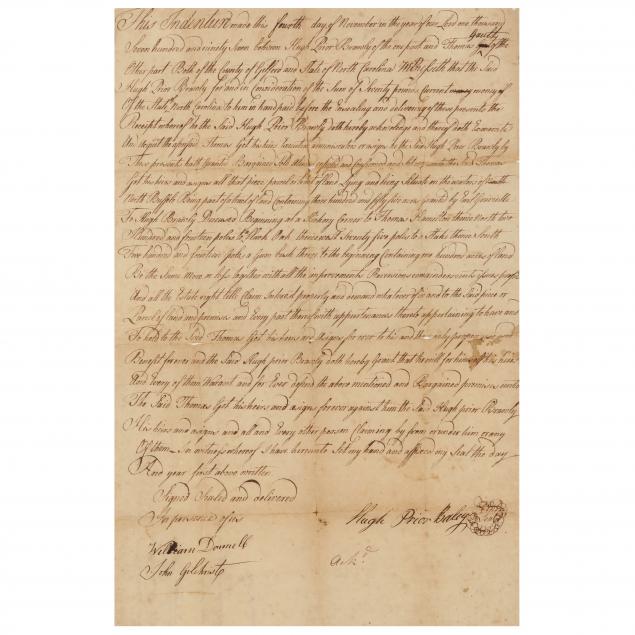 This Indenture made this fourth day of November in the year of our Lord one thousand
Seven hundred and ninety Seven between Hugh Prior Brawly of the one part and Thomas of the
Other part Both of the County of Gilford and State of North Carolina Witnesseth that the Said
Hugh Prior Brawly for and in Consideration of the Sum of Seventy pounds Current money
Of the State North Carolina to him in hand paid before the Ensealing and delivering of these presents the
Receipt whereof to the Said Hugh Prior Brawly doth hereby acknowledge and thereof doth Exonerate
And acquit the aforesaid Thomas Got his heirs Executors or asigns by the Said Hugh Prior Brawly by
These presents hath Granted Bargained Sold and Confirmed unto the Said Thomas
Got his heirs and asigns all that piece parcel or tract of land Lying and being Situate on the waters of
North Buffalo Being part of a tract of land Containing three hundred and fifty five acres granted by Earl Granville
To Hugh Brawly Deceased Beginning at a Hickory Corner to Thomas Hamilton thence North two
Hundred and fourteen poles to a Black Oak thence west Seventy five poles to a Stake thence South
Two hundred and fourteen poles a Gum bush thence to the beginning Containing one hundred acres of land
Be the Same More or less together with all the improvements Revercions remainders rents
And all the Estate right title Claim Interest property and demand whatever of in and to the Said piece or
Parcel of land and premises and Every part thereof with appurtenances thereto appertaining to have and
To hold to the Said Thomas Got his heirs and asigns for ever to his and the only proper
Benefit forever and the Said Hugh prior Brawly doth hereby Grant that he will for him Self his heirs
And every of them Warant and for Ever defend the above mentioned and Bargained premises unto
The Said Thomas Got his heirs and asigns forever against him the Said Hugh prior Brawly
His heirs and asigns and all and Every other person Claiming by from or under him or any
Of them In witness whereof I have hereunto Set my hand and affixed my Seal the day
And year first above written
Signed Sealed and delivered
In presence of us
Hugh Prior Baley
William Donnell
John Gilchrist
Ackd.